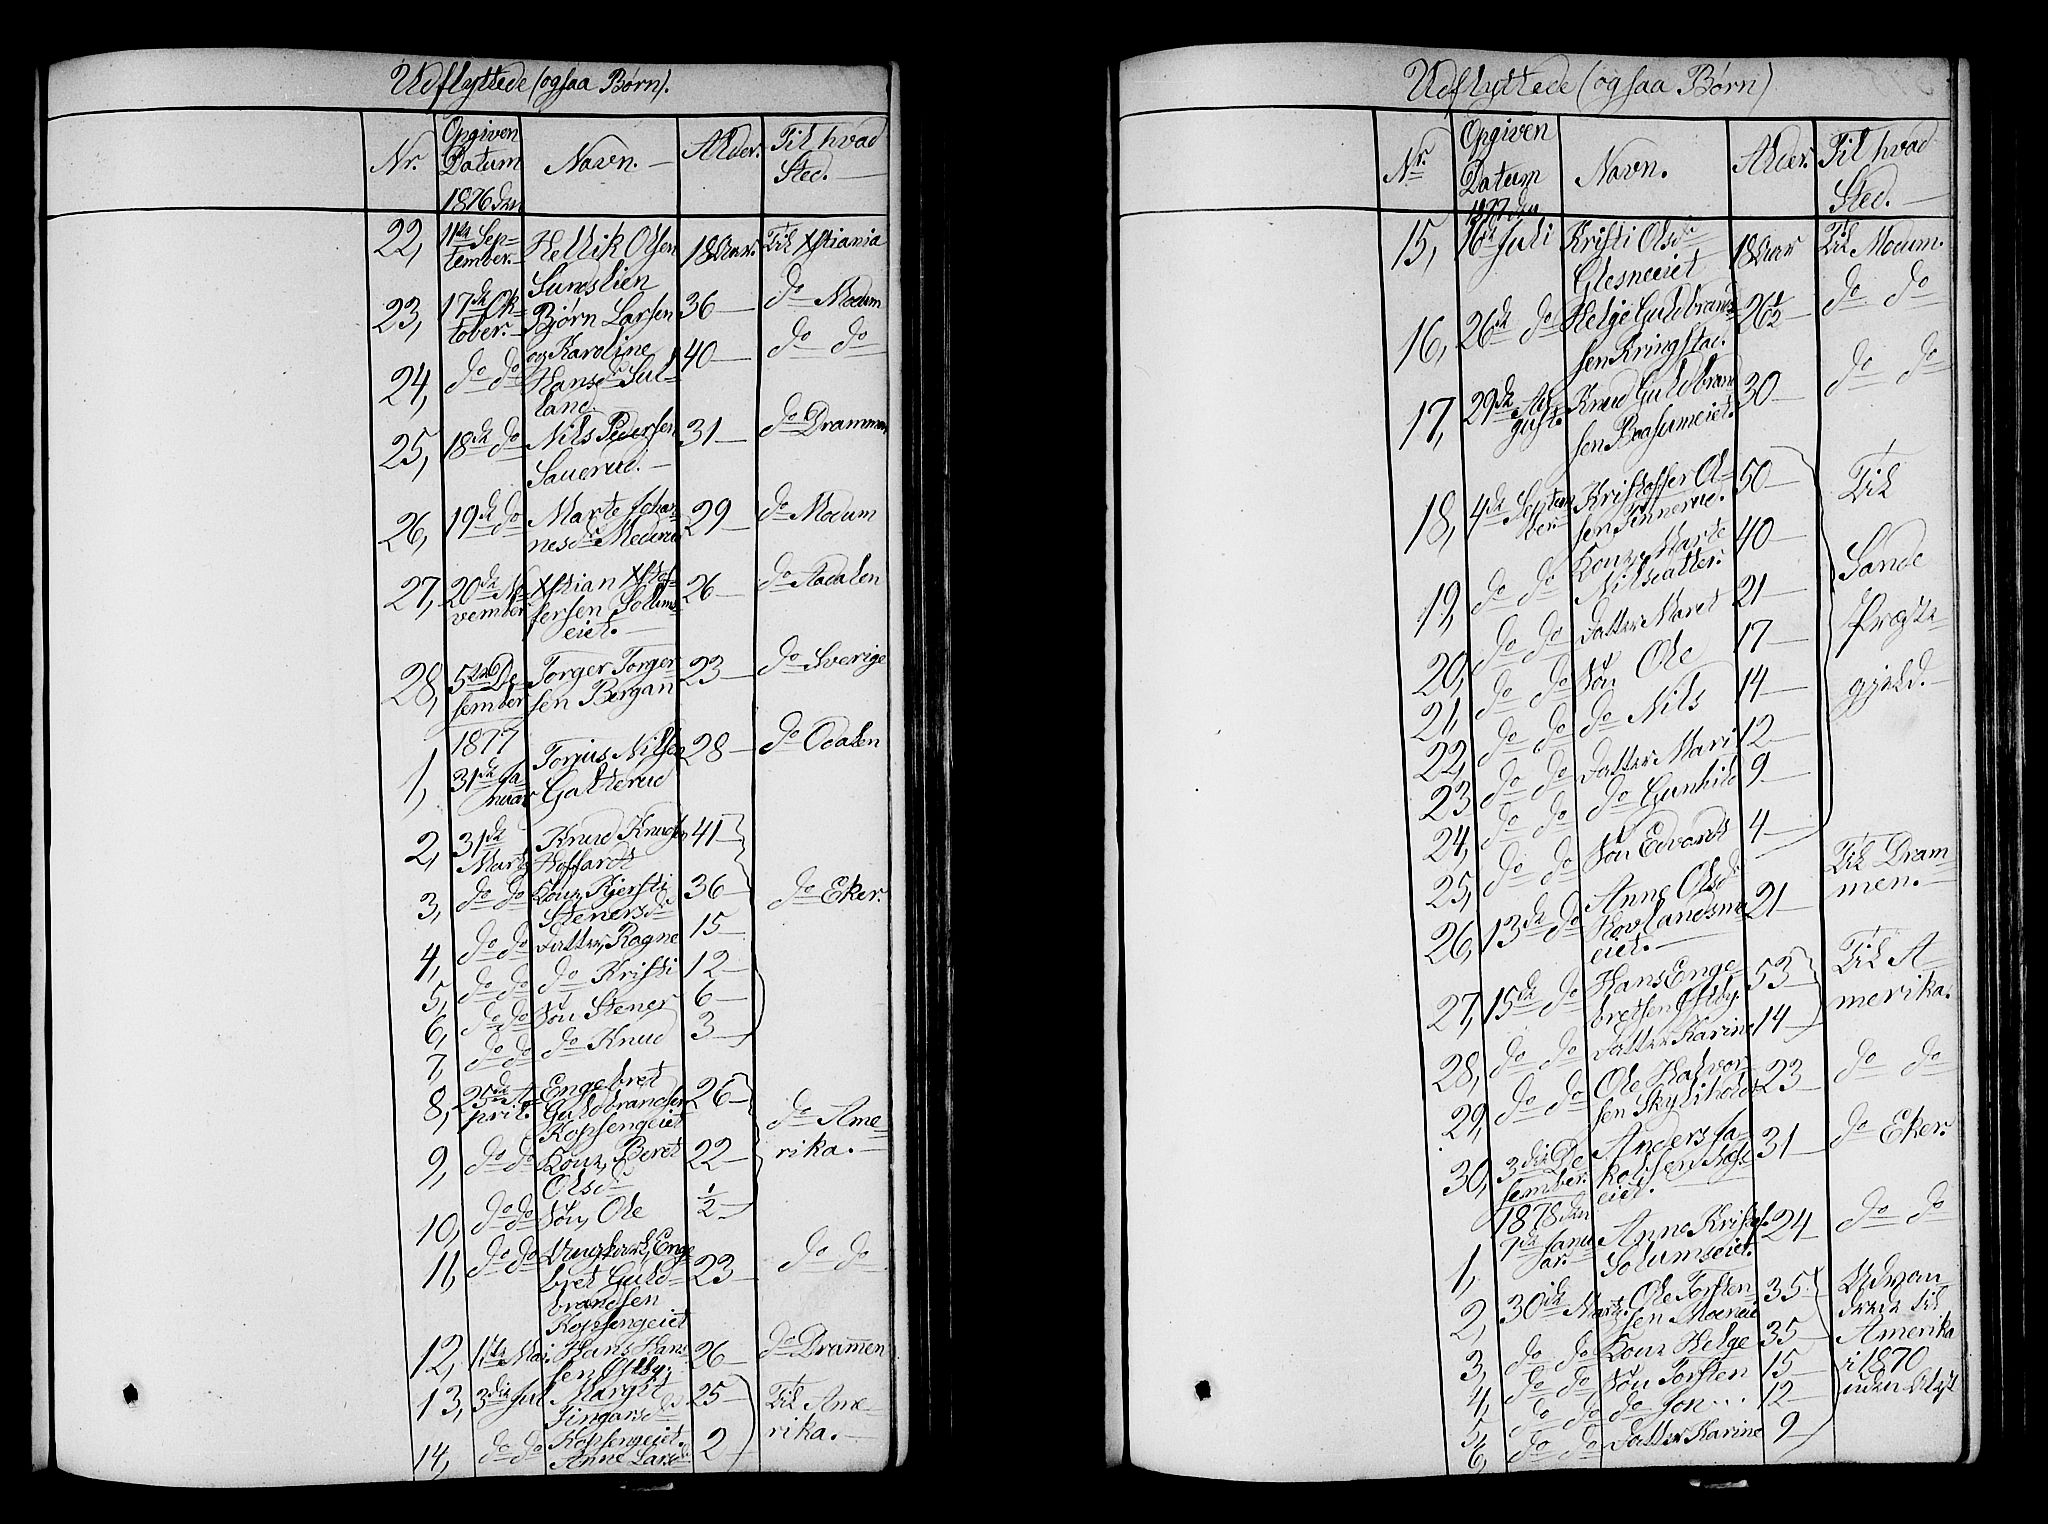 Udflyttede (ogsaa Børn).
Nr. Opgiven Datum 1876 den Navn. Alder. Til hvad Sted.
22, 11te September. Hellik Olsen Sundslien 18 Aar. Til Xstiania
23, 17de Oktober. Bjørn Larsen 36 do Modum
24, do do og Karoline Hansdr Sulland 40 do do
25, 18de do Nils Pedersen Sauerud. 31 do Drammen
26, 19de do Marte Johannesdr Mederud 29 do Modum
27, 20de November Xstian Xstoffersen Solumseiet. 26 do Aadalen
28, 5te Desember Torger Torgersen Bergan 23 do Sverige
1877
1, 31te Januar Torjus Nilsen Gatterud 28 do Odalen
2, 31te Marts Knud Knudsen Hoffardt 41
3, do do Kone Kjersti Stenersdr 36 do Eker.
4, do do Datter, Ragne 15
5, do do do Kristi 12
6, do do Søn Stener 6
7, do do do Knud 3
8, 25de April. Engebret Guldbrandsen Kopsengeiet 26 do Amerika.
9, do do Kone, Beret Olsdr 22
10, do do Søn, Ole 1/2
11, do do Ungkarl, Engebret Guldbrandsen Kopsengeiet 23 do do
12, 1te Mai. Hans Hansen Østby. 26 do Drammen
13, 3die Jul Margit Fingarsdr Kopsengeiet. 25 Til Amerika.
14, do do Anne Larsdr 2
Udflyttede (ogsaa Børn)
Nr. Opgiven Datum 1877 den Navn. Alder. Til hvad Sted.
15, 16de Juli Kristi Olsdr Glesneeiet 18 Aar Til Modum.
16, 26de do Helge Guldbrandsen Kringstad. 26 1/2 do do
17, 29de August. Knud Guldbrandsen Baasumeiet. 30 do do
18, 4de September Kristoffer Olsen Finnerud. 50 Til Sande Præstegjeld.
19, do do Kone Marte Nilsdatter. 40
20, do do Datter Maret 21
21, do do Søn Ole 17
22, do do do Nils 14
23, do do Datter Mari 12
24, do do do Gunhild 9
25, do do Søn Edvardt 4
26, 13de do Anne Olsdr Hovlandsmoeiet. 21 Til Drammen.
27, 15de do Hans Engebretsen Østby. 53 Til Amerika.
28, do do Datter Karine 14
29, do do Ole Halvorsen Skyliholdt 23 do do
30, 3die Desember. Anders Jakobsen eiet. 31 do Eker.
1878 den
1, 7de Januar. Anne Kristofr. Solumseiet. 24 do do
2, 30te Marts. Ole Torstensen Moeneie 35 Udvandrede til Amerika i 1870 uden Attest
3, do do Kone Helge 35
4, do do Søn Torsten 15
5, do do do Jon... 12
6, do do Datter Karine 9